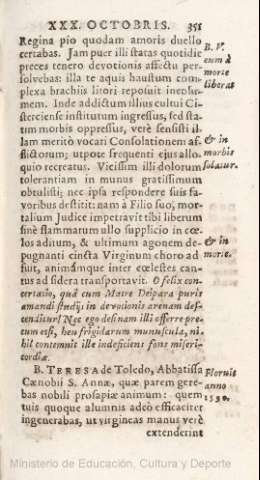 XXX. OCTOBRIS. 351
Regina pio quodam amoris duello
certabas. Jam puer illi statas quotidie
preces tenero devotionis affectu per-
solvebas: illa te aquis haustum com-
plexa brachiis litori reposuit inopſum-
mem. Inde addictum illius cultui Ci-
ſtercienſe inſtitutum ingreſſus, ſed ſta-
tim morbis oppreſſus, verè ſenſiſti il-
lam meritò vocari Conſolationem af-
flictorum; utpote frequenti ejus allo-
quio recreatus. Viciſſim illi dolorum
tolerantiam in munus gratiſſimum
obtuliſti; nec ipſa reſpondere ſuis fa-
voribus deſtitit: nam à Filio ſuo, mor-
talium Judice impetravit tibi liberum
ſinè flammarum ullo ſupplicio in cœ-
los aditum, & ultimum agonem de-
pugnanti cincta Virginum choro ad
fuit, animamque inter cœleſtes can-
tus ad ſidera transportavit. O felix con-
certatio, quâ cum Matre Deipara puri
amandi ſtudij in devotionis arenam deſ-
cenditur! Nec ego deſinam illi offerre pre-
cum etſi, heu frigidarum munuſcula, ni-
hil contemnit ille indeficiens fons miſeri-
cordiæ.
B. TERESA de Toledo, Abbatiſſa
Cœnobii S. Annæ, quæ parem gere-
bas nobili proſapiæ animum: quem
tuis quoque alumnis adeò efficaciter
ingenerabas, ut virgineas manus verè
extenderint
B. V.
eum à
morte
liberat
& in
morbis
ſolatur.
& in
morte.
Floruit
anno
1590.
Ministerio de Educación, Cultura y Deporte